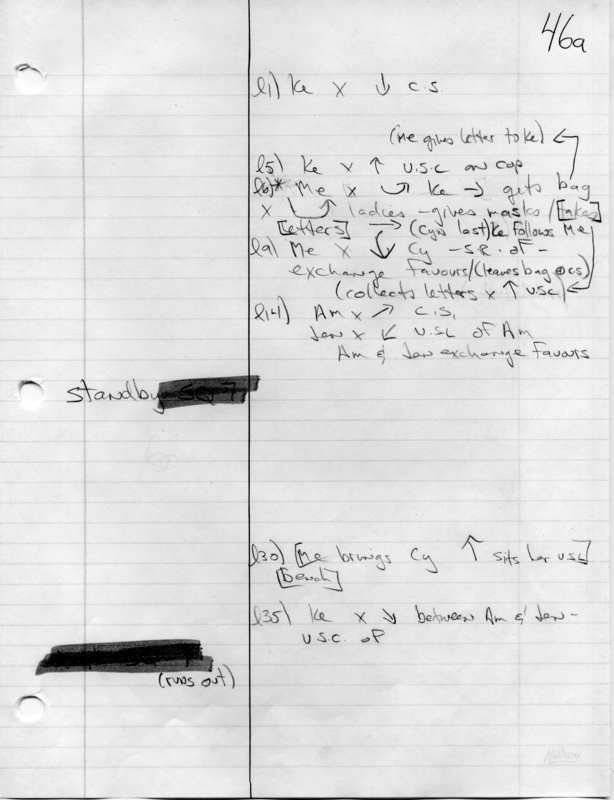 46a
l1) Ke x ↓ c.s.
(Me gives letter to Ke) ←
l5) Ke x ↑ u.s.c on cop
l6)* Me x ↗ Ke → gets bag
x ladies - gives masks / [takes]
[letters] → (Cy's last) Ke follows Me
l9) Me x ↓ Cy - s.r. of -
exchange favours / (leaves bag @ cs)
(collects letters x ↑ usc) ←
l14) Am x ↗ c.s.
Jen x ↙ u.s.l of Am
Am & Jen exchange favours
standby SQ 7
l30) [Me brings Cy ↑ sits her usl]
[bench]
l35) Ke x ↘ between Am & Jen -
u.s.c. of
(runs out)
Hilroy